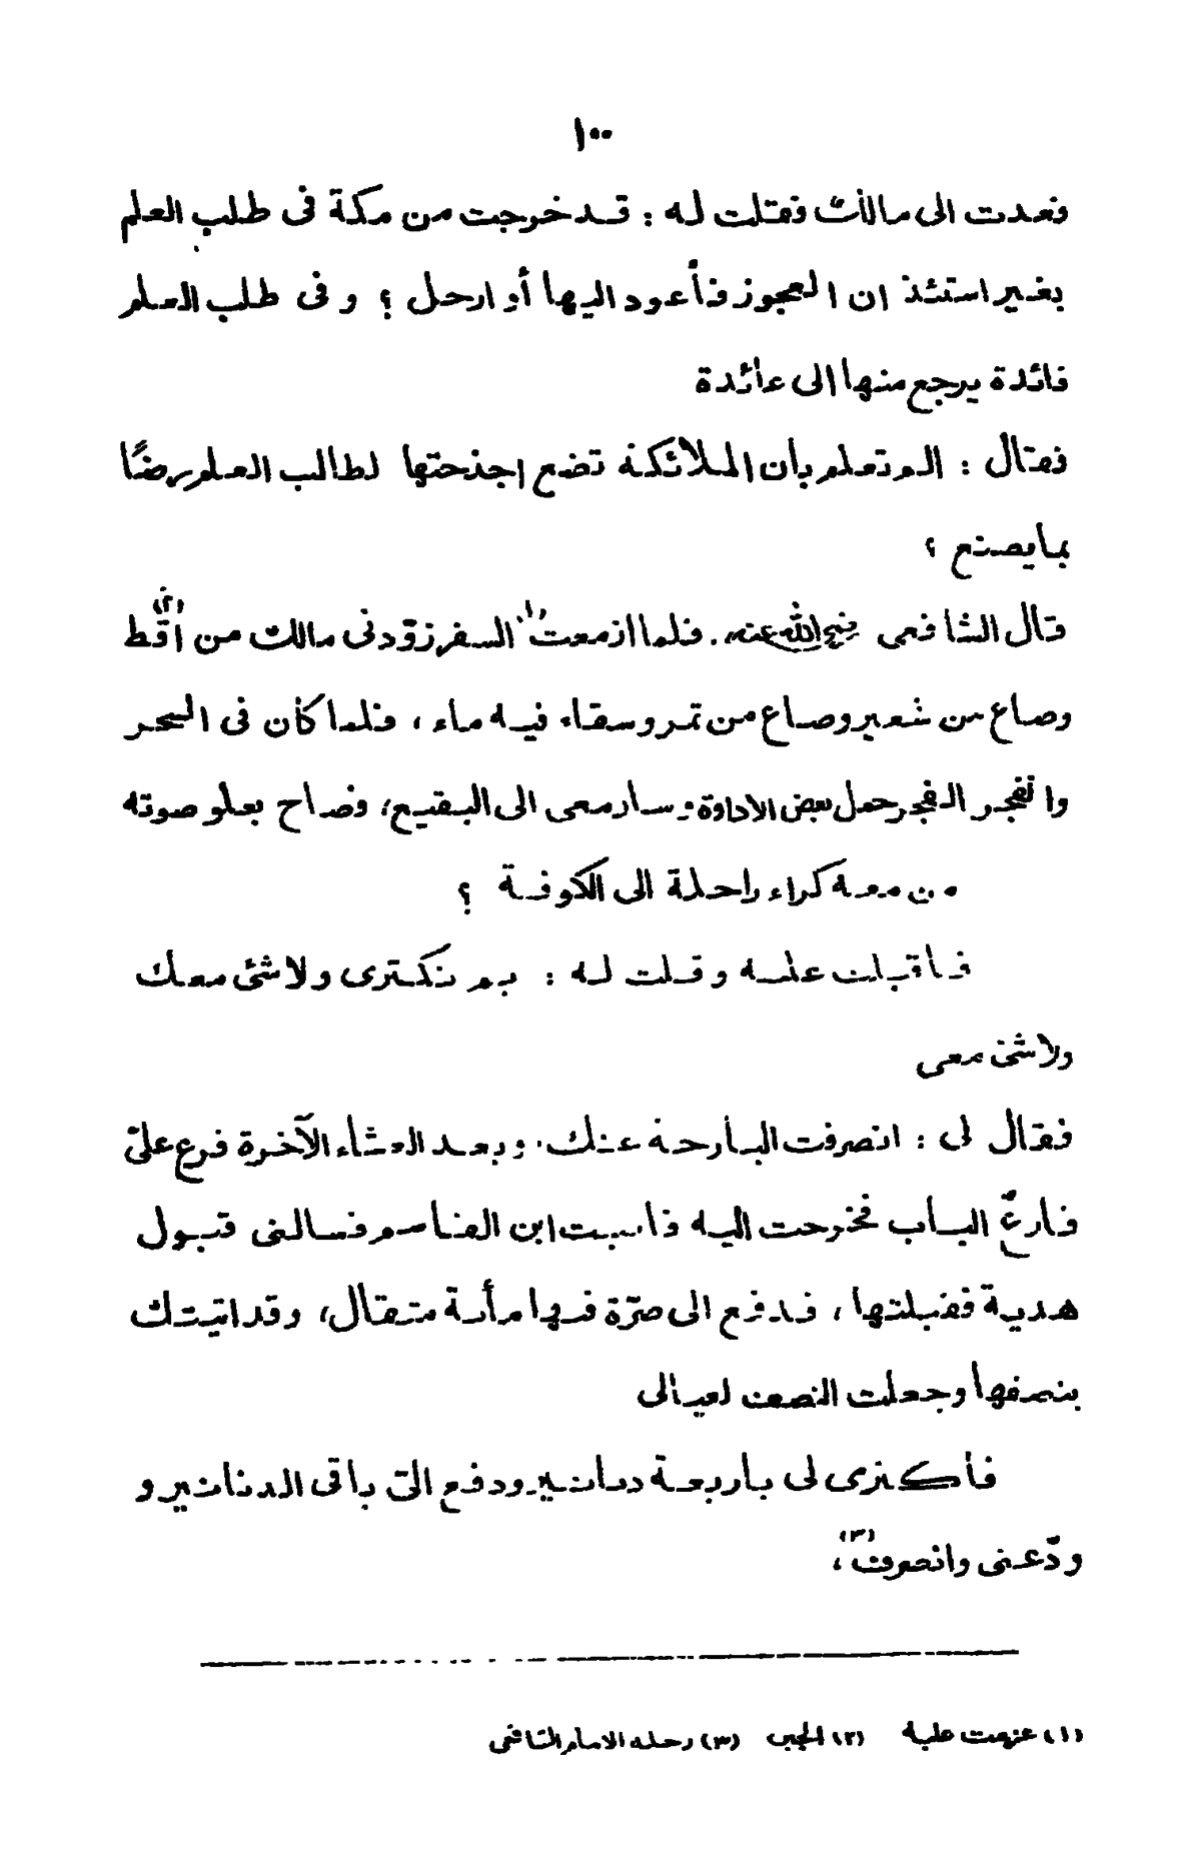 ١٠٠
فعدت الى مالك فقلت له : قد خرجت من مكة فى طلب العلم
بغير استئذ ان العجوز فأعود اليها أو ارحل ؟ وفى طلب العلم
فائدة يرجع منها الى عائدة
فقال : الم تعلم بأن الملائكة تضع اجنحتها لطالب العلم رضًا
بما يصنع ؟
قال الشافعى رضي الله عنه . فلما ازمعت(١) السفر زوّدنى مالك من أقط(٢)
وصاع من شعير وصاع من تمر وسقاء فيه ماء ، فلما كان فى السحر
وانفجر الفجر حمل بعض الاداوة وسار معى الى البقيع، فصاح بعلو صوته
من معه كراء راحلة الى الكوفة ؟
فاقبلت عليه وقلت له : بم تكترى ولا شئ معك
ولا شئ معى
فقال لى : انصرفت البارحة عنك . وبعد العشاء الآخرة قرع علىّ
قارعٌ الباب فخرجت اليه فاصبت ابن القاسم فسالنى قبول
هدية فقبلتها ، فدفع الى صرّة فيها مأية مثقال، وقد اتيتك
بنصفها وجعلت النصف لعيالى
فأكترى لى باربعة دنانير ودفع الىّ باقى الدنانير و
ودّعنى وانصرف(٣)،
(١) عزمت عليه (٢) الجبن (٣) رحلة الامام الشافعى